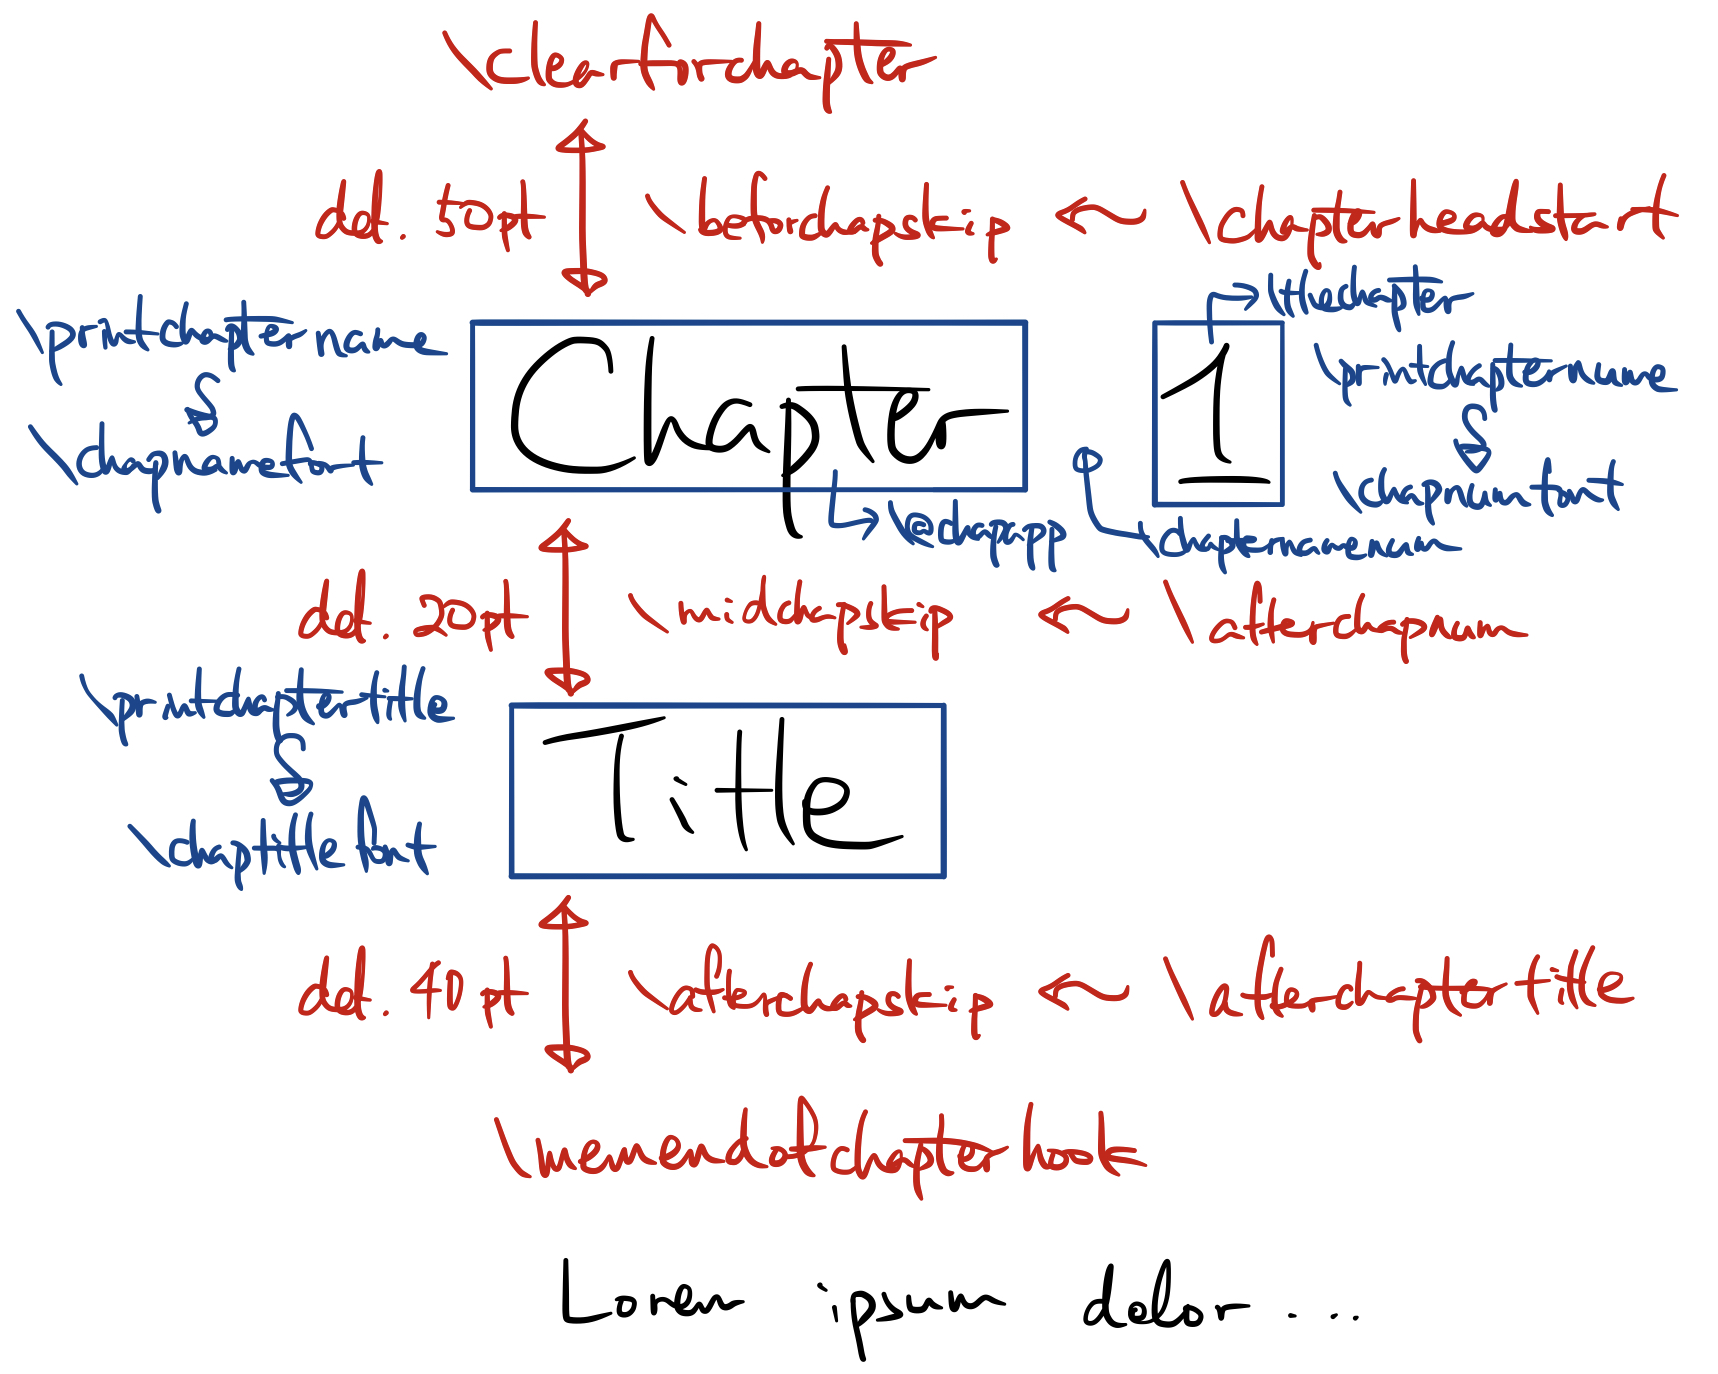 \clearforchapter
def. 50pt \beforchapskip \chapterheadstart
\thechapter
\printchaptername Chapter 1 \printchapternume
\chapnamefont \chapnumfont
\@chapapp \chapternamenum
def. 20pt \midchapskip \afterchapnum
\printchaptertitle
Title
\chaptitlefont
def. 40pt \afterchapskip \afterchaptertitle
\memendofchapterhook
Lorem ipsum dolor ...